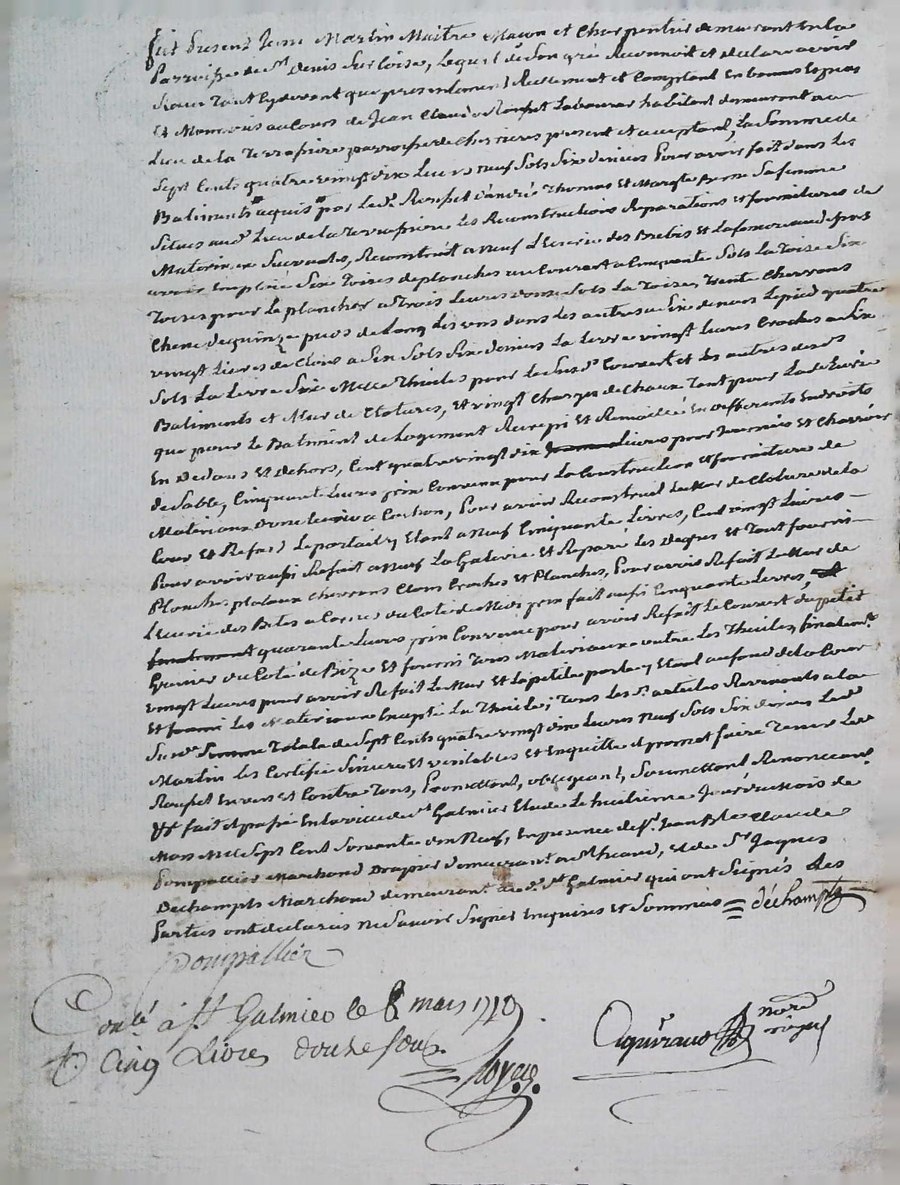 fut Present Jean Martin Maitre Macon et Charpentier demeurant en la
Parroisse de St Denis Sur Coise, Lequel de Son gré Reconnoit et declare avoir
Recu tant cy devant que presentement Reellement et Comptant En bonnes Especes
Et Monnoies au Cours de Jean Claude Roupet Laboureur habitant demeurant au
Lieu de la Terrassiere parroisse de Chevrieres present et acceptant, La Somme de
Sept Cents quatre vingt dix Livres neuf Sols Six deniers Pour avoir fait dans les
Batiments aquis par Led. Roupet d'andré Thomas Et Margte Sa femme
Situés aud. Lieu de la Terrassiere les Reconstructions Reparations et fournitures de
Materiaux Suivantes, Reconstruit a neuf L'Ecurie des Brebis et La
avoir Employé Six Toises de planches au Couvert a Cinquante Sols La Toise Six
Toises pour Le plancher a Trois Livres douze Sols La Toise, Trente Chevrons
Chene de quinze pieds de Long Les uns dans les autres a Six deniers Le pied quatre
vingt Livres de Cloux a Six Sols Six deniers La Livre vingt Livres Croches a Six
Sols La Livre Six Mille Thuiles pour le Susd. Couvert et Les autres desd.
Batiments et Mur de Clotures, Et vingt Charges de Chaux Tant pour Lad. Ecurie
que pour Le Batiment de Logement Recrepi Et Remaillé En differents Endroits
En Dedans Et Dehors, Cent quatre vingt dix Livres pour Journées Et Charrois
de Sable, Cinquante Livres prix Convenu pour La Construction et fourniture de
Materiaux a Cochon, Pour avoir Reconstruit Le Mur de Cloture de la
Cour Et Refait Le portail y Etant a neuf Cinquante Livres, Cent vingt Livres
Pour avoir aussi Refait a neuf La Galerie Et Reparé les Degres et Tout fourni
Planches plataux chevrons Cloux Croches Et Planches, Pour avoir Refait Le Mur de
L'Ecurie des Betes a Cornes du Coté de Midi prix fait aussi Cinquante Livres, Et
finalement quarante Livres prix Convenu pour avoir Refait Le Couvert du petit
Grenier du Coté de Bize Et fourni Tous Materiaux outre Les Thuiles, finalemt
vingt Livres pour avoir Refait Le Mur Et La petite porte y Etant au fond de la Cour
Et fourni Les Materiaux Excepté La Thuile; Tous Les Sd. articles Revenants a la
Susd. Somme Totale de Sept Cents quatre vingt dix Livres neuf Sols Six deniers Led.
Martin les Certifie Sinceres Et veritables Et En quitte et promet faire Tenir Led.
Roupet Envers Et Contre Tous, Promettant, obligeant, Soumettant Renonceant
fait et passé En la ville de St Galmier Etude Le huitieme Jour du Mois de
Mars Mil Sept Cent Soixante dix Neuf, En presence de Sr. Jean Bte Claude
Pompallier Marchand Drapier demeurant a St heand, et de Sr Jaques
Dechampts Marchand demeurant aud. St Galmier qui ont Signés Les
Parties ont declarés ne Savoir Signer Enquises Et Sommées = déchampts
Pompallier
Conlé à St Galmier le 8 mars 1779.
R. Cinq Livres douze Sous.
nore
royal